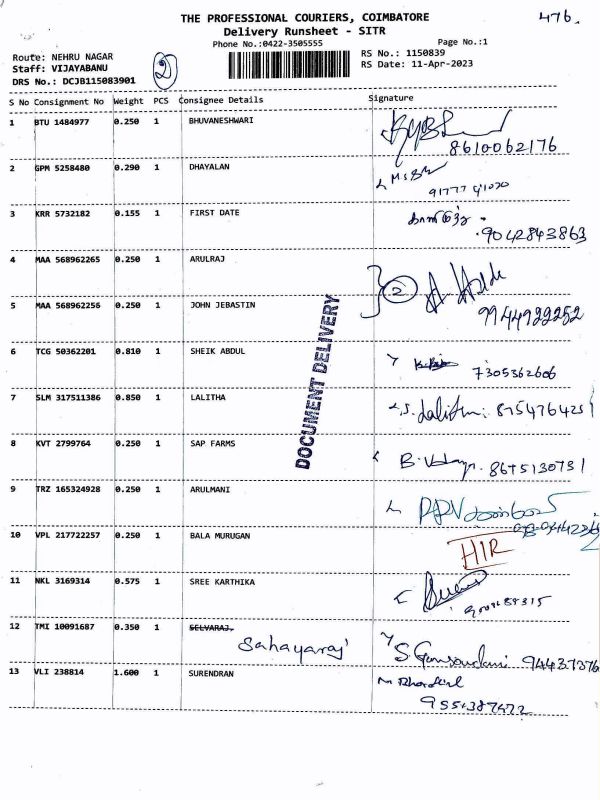 THE PROFESSIONAL COURIERS, COIMBATORE
476.
Delivery Runsheet - SITR
Phone No.:0422-3505555
Page No.:1
Route: NEHRU NAGAR
RS No.: 1150839
Staff: VIJAYABANU
RS Date: 11-Apr-2023
DRS No.: DCJB115083901
2
S No Consignment No Weight PCS Consignee Details Signature
1 BTU 1484977 0.250 1 BHUVANESHWARI
8610062176
2 GPM 5258480 0.290 1 DHAYALAN
3 KRR 5732182 0.155 1 FIRST DATE
9042843863
4 MAA 568962265 0.250 1 ARULRAJ
2
5 MAA 568962256 0.250 1 JOHN JEBASTIN
9944922252
DOCUMENT DELIVERY
6 TCG 50362201 0.810 1 SHEIK ABDUL
7305362606
7 SLM 317511386 0.850 1 LALITHA
S. Lalitha: 8754764251
8 KVT 2799764 0.250 1 SAP FARMS
9 TRZ 165324928 0.250 1 ARULMANI
10 VPL 217722257 0.250 1 BALA MURUGAN
HIR
11 NKL 3169314 0.575 1 SREE KARTHIKA
12 TMI 10091687 0.350 1 SELVARAJ.
Sahayaraj
13 VLI 238814 1.600 1 SURENDRAN